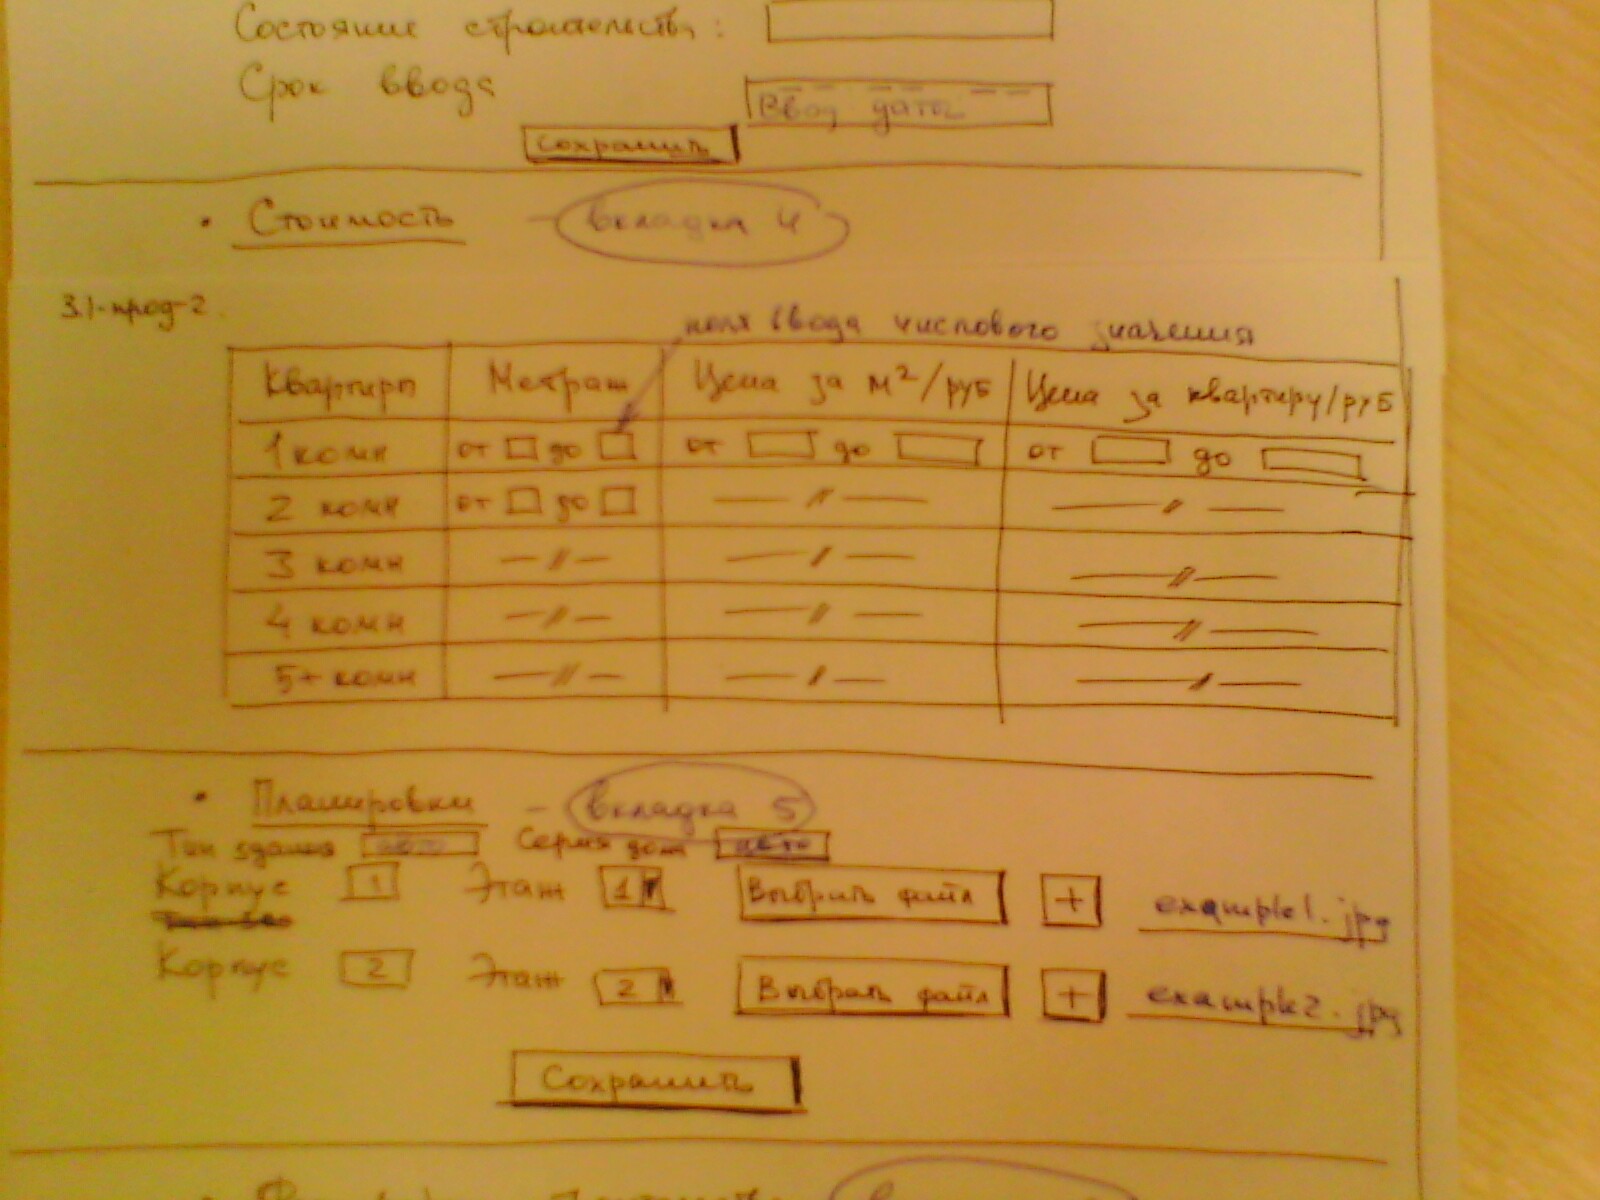 Состояние строительства:
Срок ввода
Ввод даты
сохранить
• Стоимость - вкладка 4
3.1-прод-2.
поля ввода числового значения
Квартиры Метраж Цена за м²/руб Цена за квартиру/руб
1 комн от до от до от до
2 комн от до — // — — // —
3 комн — // — — // — — // —
4 комн — // — — // — — // —
5+ комн — // — — // — — // —
• Планировки - вкладка 5
Тип здания авто Серия дома авто
Корпус 1 Этаж 1 Выбрать файл + example1.jpg
Корпус 2 Этаж 2 Выбрать файл + example2.jpg
Сохранить